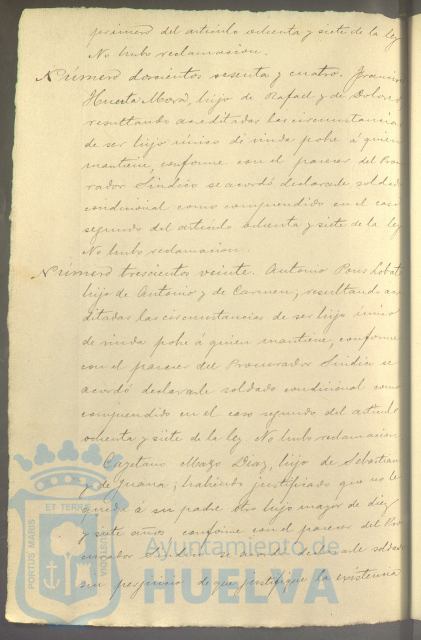 primero del artículo ochenta y siete de la ley
No hubo reclamacion.
Número doscientos sesenta y cuatro. Francisco
Huerta Mora, hijo de Rafael y de Dolores,
resultando acreditadas las circunstancias
de ser hijo único de viuda pobre á quien
mantiene, conforme con el parecer del Procu-
rador Síndico se acordó declararle soldado
condicional como comprendido en el caso
segundo del artículo ochenta y siete de la ley
No hubo reclamacion.
Número trescientos veinte. Antonio Pons
hijo de Antonio y de Carmen; resultando acre
ditadas las circunstancias de ser hijo único
de viuda pobre á quien mantiene, conforme
con el parecer del Procurador Síndico se
acordó declararle soldado condicional como
comprendido en el caso segundo del artículo
ochenta y siete de la ley No hubo reclamacion
Cayetano Mazo Diaz, hijo de Sebastian
y de Juana; habiendo justificado que no le
queda á su padre otro hijo mayor de diez
y siete años conforme con el parecer del Pro
curador Síndico se acordó declararle soldado
sin perjuicio de que justifique la existencia
PORTUS MARIS
ET TERRAE
CUSTODIA
Ayuntamiento de
HUELVA